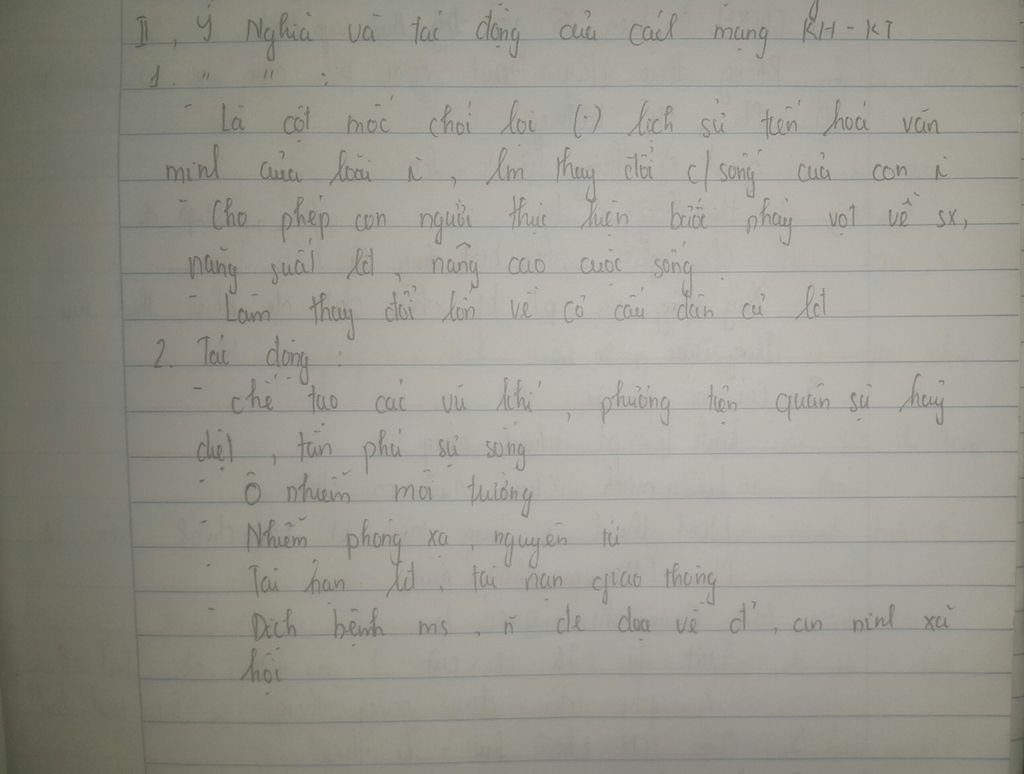 II, Ý Nghĩa và tác động của cách mạng KH - KT
1. " " :
- Là cột mốc chói lọi (.) lịch sử tiến hoá văn
minh của loài n̄, lm thay đổi c/sống của con n̄
- Cho phép con người thực hiện bước nhảy vọt về sx,
năng suất lđ, nâng cao cuộc sống
- Làm thay đổi lớn về cơ cấu dân cư lđ
2. Tác động :
- chế tạo các vũ khí, phương tiện quân sự huỷ
diệt, tàn phá sự sống
- Ô nhiễm môi trường
- Nhiễm phóng xạ, nguyên tử
- Tai nạn lđ, tai nạn giao thông
- Dịch bệnh ms, n̄ đe doạ về đ², an ninh xã
hội